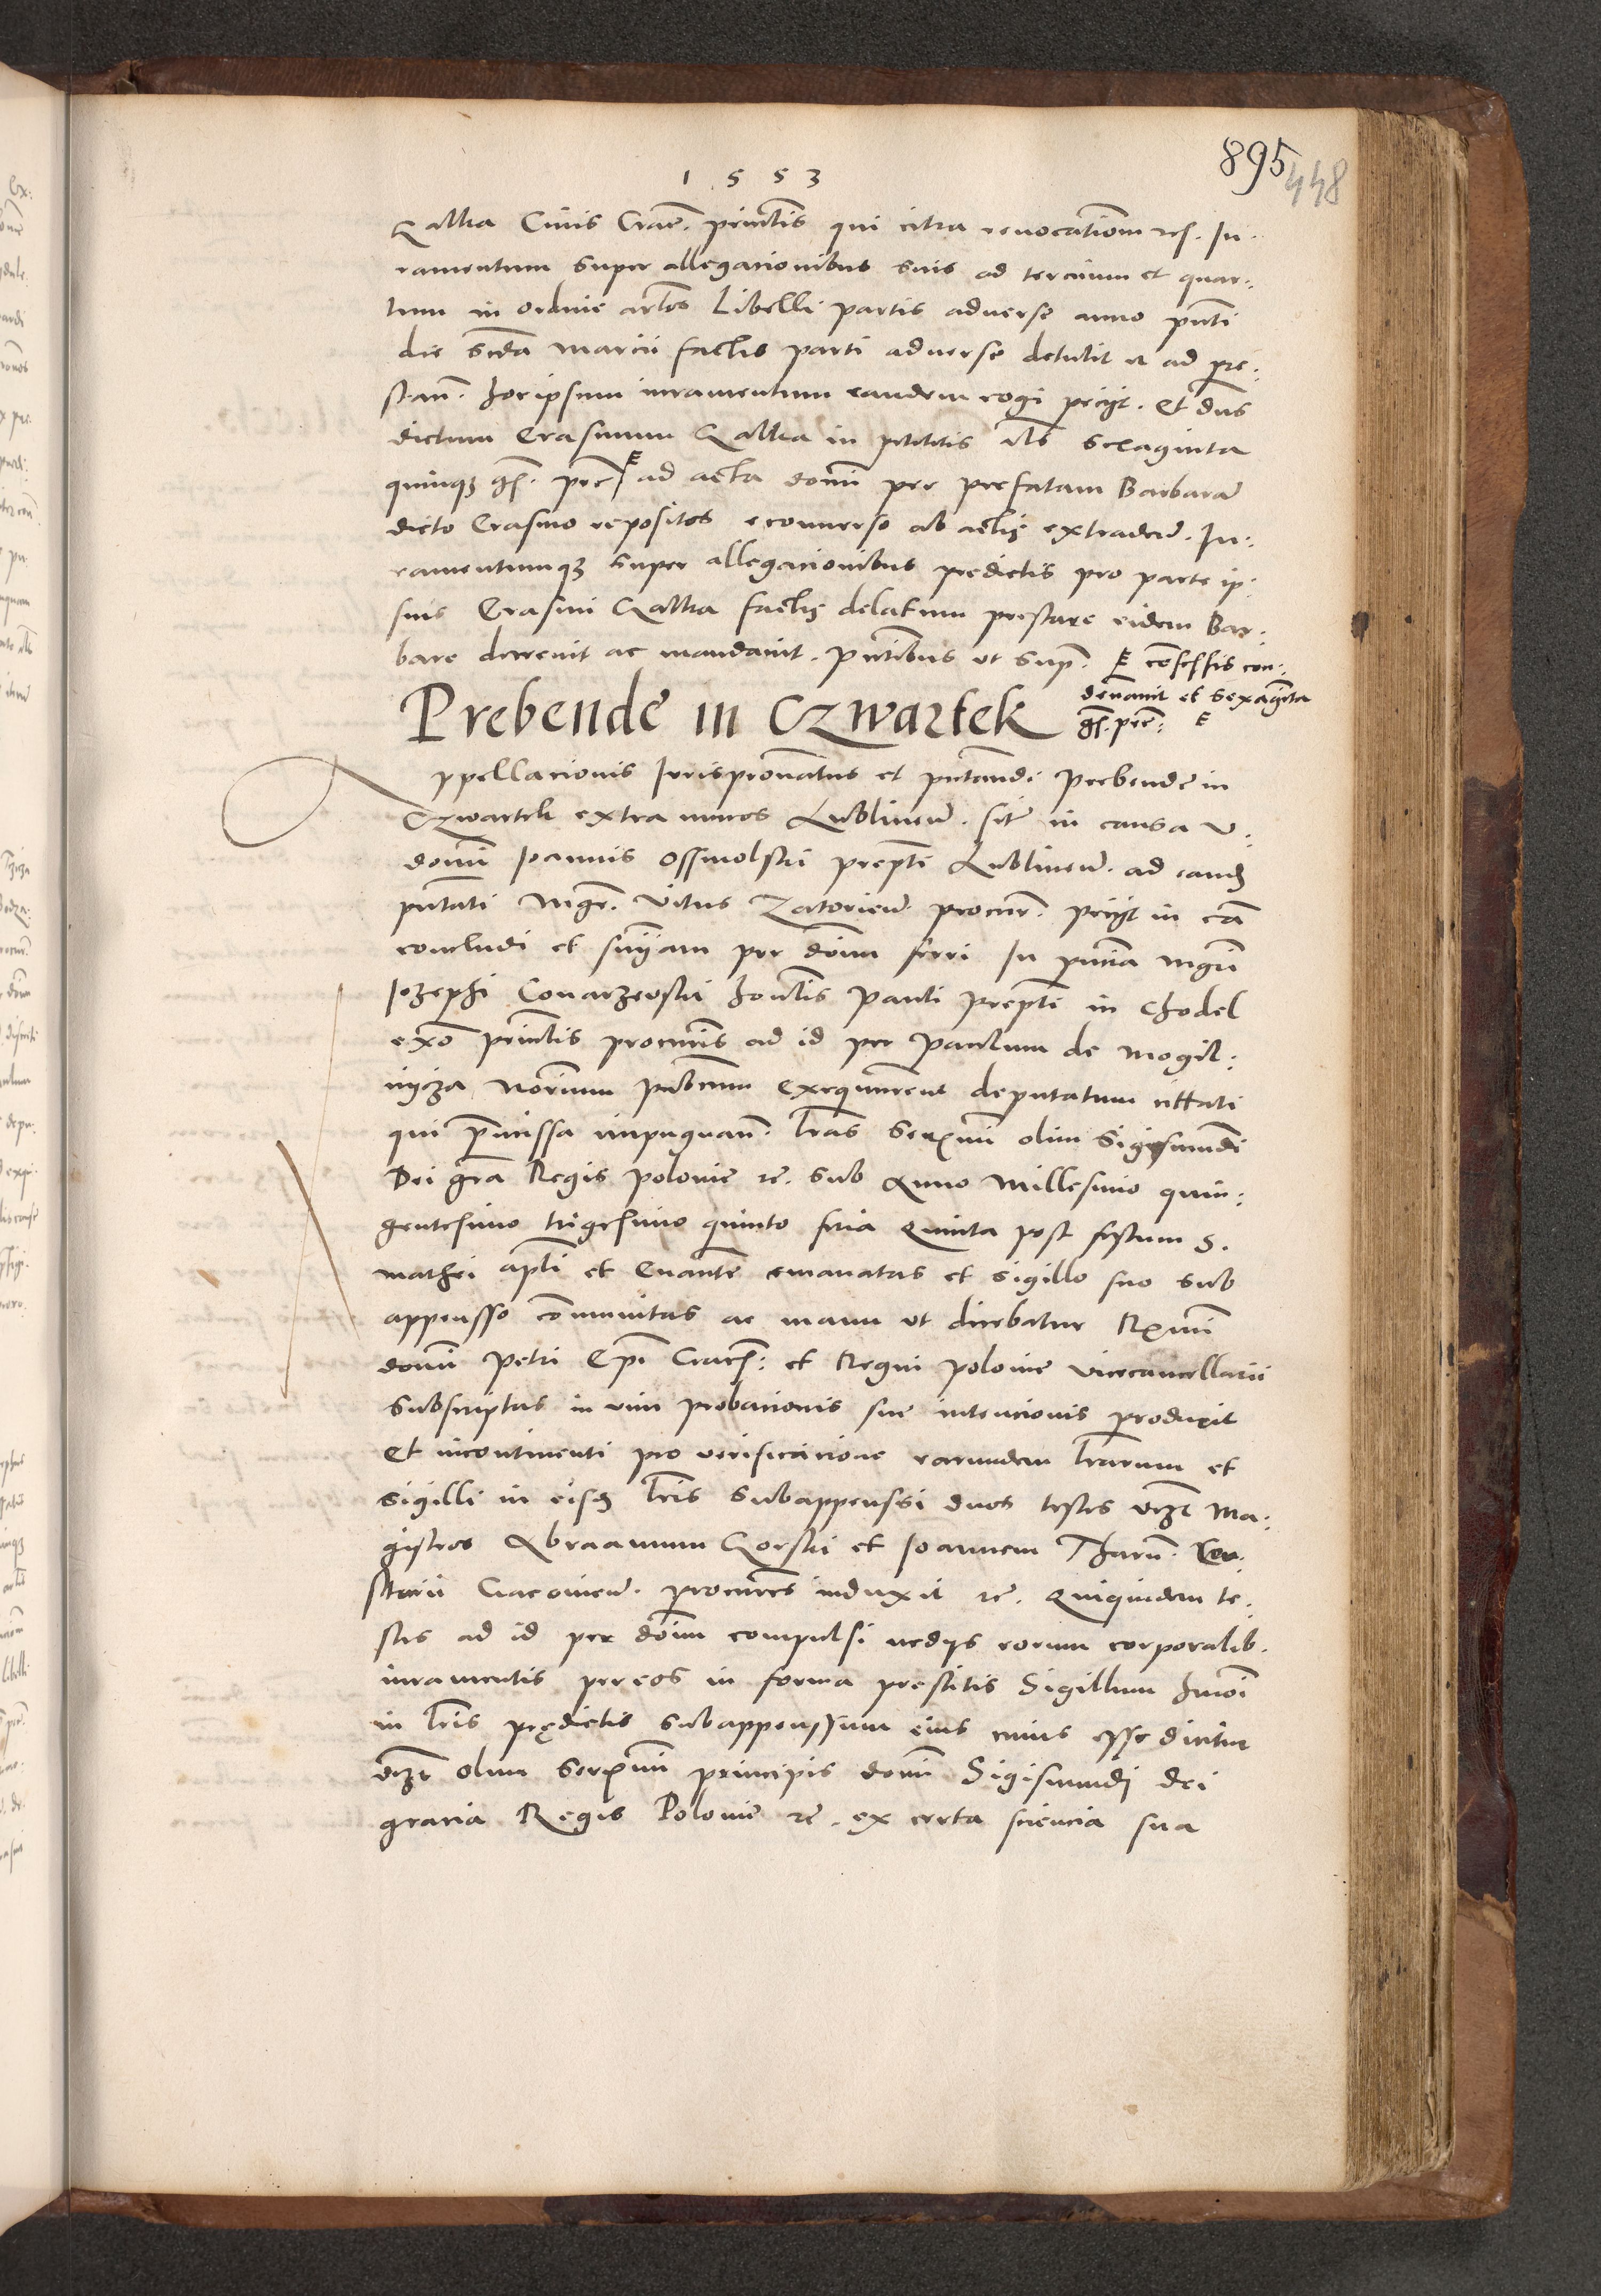 895
448
1553
Galka Civis Crac̄. prn̄ctis qui citra revocationem rs. Iu¬
ramentum super allegacionibus suis ad tercium et quar¬
tum in ordine artl̄os Libelli partis adverse anno pn̄ti
die scd̄a marcii factis parti adverse detulit et ad pre¬
stan̄. hoc ipsum iuramentum eandem cogi peciit. Et dn̄s
dictum Erasmum Galka in sexaginta
quinq₃ gs̄. pec̄ E ad acta domī per prefatam Barbaram
dicto Erasmo repositos econverso ab actis extradend̄. Iu¬
ramentumq₃ super allegacionibus predictis pro parte ip¬
sius Erasmi Galka factis delatum prestare eidem Bar¬
bare decrevit ac mandavit. pn̄tibus ut sup̄. E cōfessis con¬
dēnavit et sexagīta
gs̄. pec̄: E
Prebende in Czwartek
Appellacionis Iurispron̄atus et pn̄tandi Prebende in
Czwartek extra muros Lublinen̄. sit̄ in causa v.
domī Ioannis Ossmolski prepti Lublinen̄. ad eand₃
pn̄tati Mgr̄. Vitus Zatorien̄. procur̄. peciit in cā
concludi et sn̄iam per dom̄ ferri In pn̄cia mgrī
Iozephi Conarzewski hon̄lis Pauli Prepti in Chodel
exō prn̄ctis procur̄is ad id per Paulum de Mogil¬
nycza Norium Publicum exequutorem deputatum cittati
qui p̄missa impugnan̄. Lr̄as Serm̄i olim Sigismundi
Dei grā Regis Polonie rē. sub Anno Millesimo quin¬
gentesimo trigesimo quinto feria quinta post festum S.
mathei aptl̄i et Evan̄te emanatas et sigillo suo sub
appensso cōmunitas ac manu ut dicebatur Rm̄i
domī Petri Epī Crac̄: et Regni Polonie vicecancellarii
subscriptas in vim probacionis sue intencionis produxit
et incontinenti pro verificacione earundem lr̄arum et
sigilli in eisd₃ lr̄is subappenssi duos testes vz̄t Ma¬
gistros Abraamum Gorski et Ioannem Tharn̄.
Cracovien̄. procur̄es induxit rē. Quiquidem te¬
stes ad id per dom̄ compulsi mediis eorum corporalib.
iuramentis per eos in forma prestitis Sigillum hmōi
in lr̄is prędictis subappenssum eius cuius esse dicitur
vz̄t olim Serm̄i principis domī Sigismundi dei
gracia Regis Polonie rē. ex certa sciencia sua